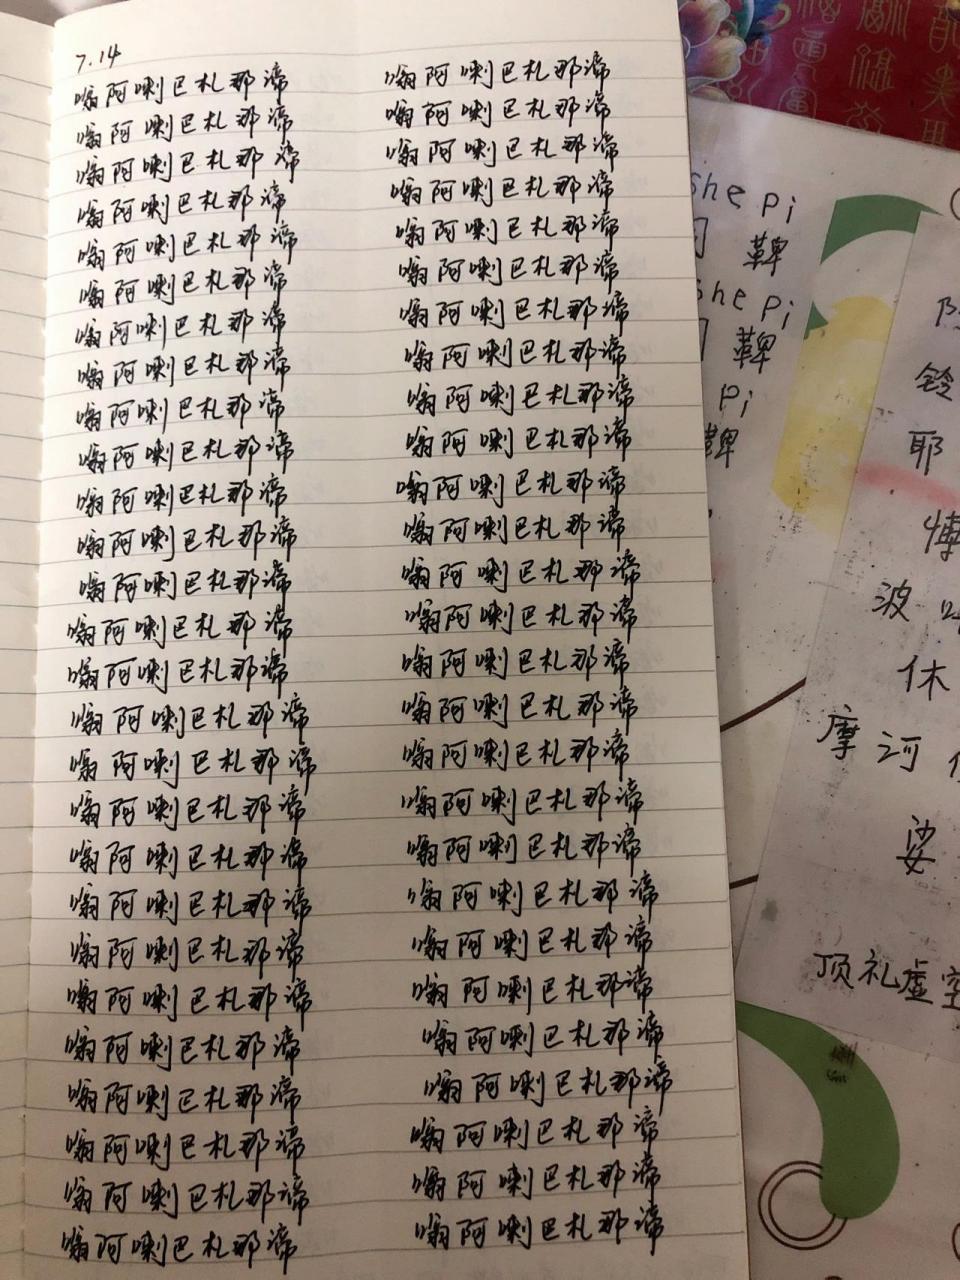 7.14
嗡阿喇巴札那谛
嗡阿喇巴札那谛
嗡阿喇巴札那谛
嗡阿喇巴札那谛
嗡阿喇巴札那谛
嗡阿喇巴札那谛
嗡阿喇巴札那谛
嗡阿喇巴札那谛
嗡阿喇巴札那谛
嗡阿喇巴札那谛
嗡阿喇巴札那谛
嗡阿喇巴札那谛
嗡阿喇巴札那谛
嗡阿喇巴札那谛
嗡阿喇巴札那谛
嗡阿喇巴札那谛
嗡阿喇巴札那谛
嗡阿喇巴札那谛
嗡阿喇巴札那谛
嗡阿喇巴札那谛
嗡阿喇巴札那谛
嗡阿喇巴札那谛
嗡阿喇巴札那谛
嗡阿喇巴札那谛
嗡阿喇巴札那谛
嗡阿喇巴札那谛
嗡阿喇巴札那谛
嗡阿喇巴札那谛
嗡阿喇巴札那谛
嗡阿喇巴札那谛
嗡阿喇巴札那谛
嗡阿喇巴札那谛
嗡阿喇巴札那谛
嗡阿喇巴札那谛
嗡阿喇巴札那谛
嗡阿喇巴札那谛
嗡阿喇巴札那谛
嗡阿喇巴札那谛
嗡阿喇巴札那谛
嗡阿喇巴札那谛
嗡阿喇巴札那谛
嗡阿喇巴札那谛
嗡阿喇巴札那谛
嗡阿喇巴札那谛
嗡阿喇巴札那谛
嗡阿喇巴札那谛
嗡阿喇巴札那谛
嗡阿喇巴札那谛
嗡阿喇巴札那谛
嗡阿喇巴札那谛
嗡阿喇巴札那谛
嗡阿喇巴札那谛
嗡阿喇巴札那谛
嗡阿喇巴札那谛
she pi
鞞
she pi
鞞
pi
鞞
铃
耶
波
休
摩 诃
娑
顶礼虚空